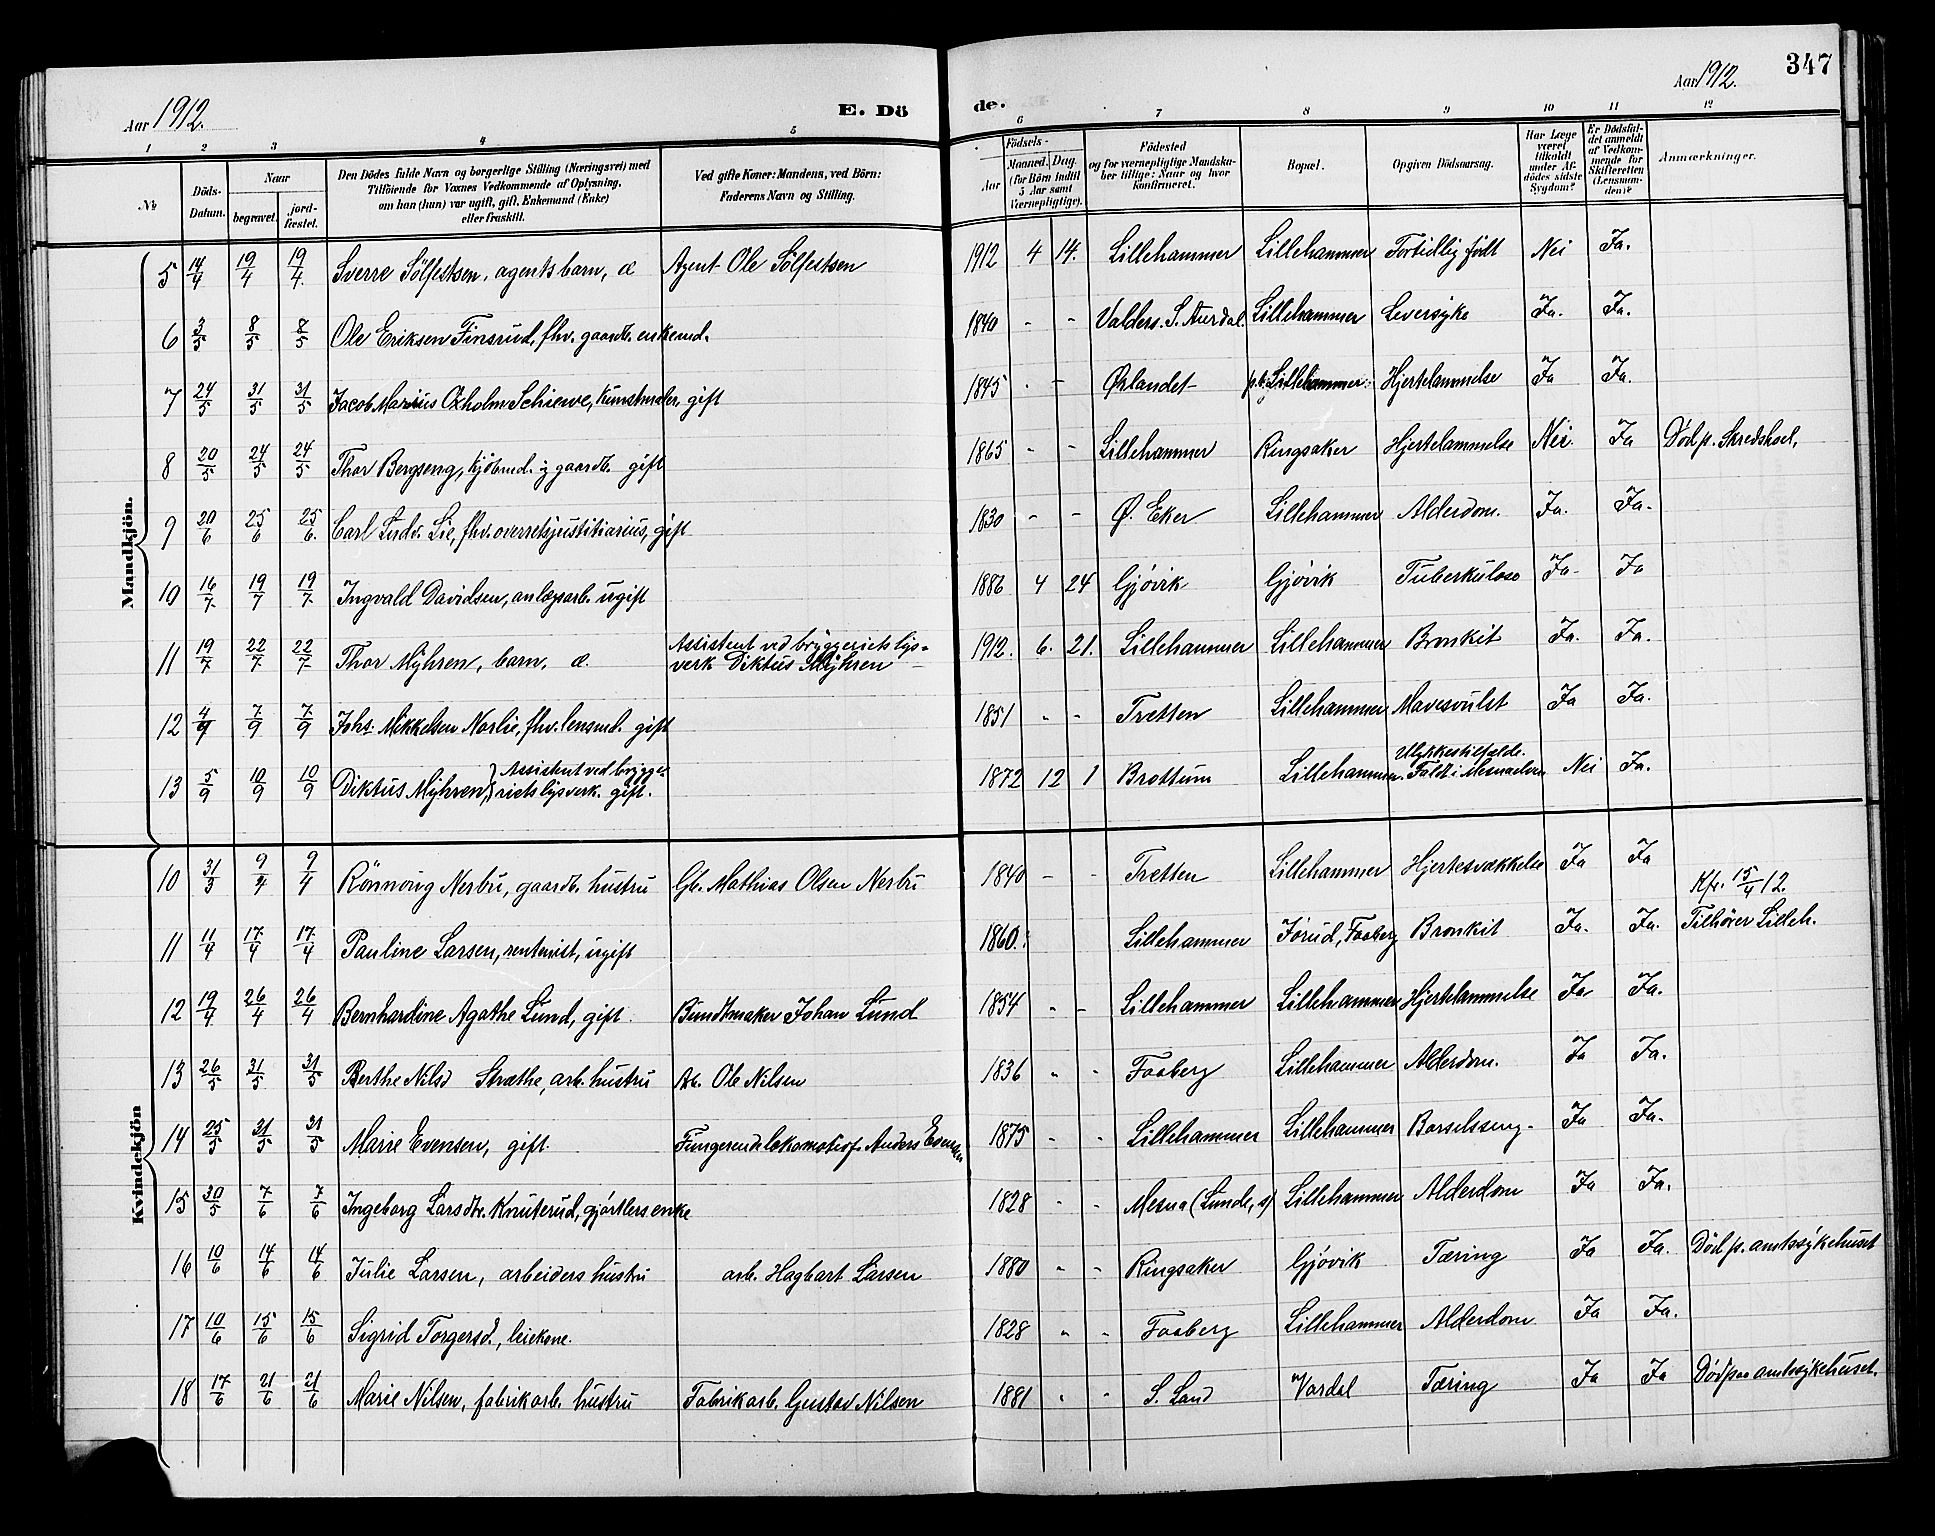 347
Aar 1912. E. Dö de. Aar 1912.
1 2 3 4 5 6 7 8 9 10 11 12
№ Döds-Datum. Naar begravet. jordfæstet. Den Dödes fulde Navn og borgerlige Stilling (Næringsvei) med Tilföiende for Voxnes Vedkommende af Oplysning, om han (hun) var ugift, gift, Enkemand (Enke) eller fraskilt. Ved gifte Koner: Mandens, ved Börn: Faderens Navn og Stilling. Födsels- Aar Maaned. Dag. (for Börn indtil 5 Aar samt Værnepligtige). Födested og for værnepligtige Mandskaber tillige: Naar og hvor konfirmeret. Bopæl. Opgiven Dödsaarsag. Har Læge været tilkaldt under Afdödes sidste Sygdom? Er Dödsfaldet anmeldt af Vedkommende for Skifteretten (Lensmanden)? Anmærkninger.
Mandkjön.
5 14/4 19/4 19/4. Sverre Sölfestsen, agents barn, æ Agent Ole Sölfestsen 1912 4 14. Lillehammer Lillehammer Fortidlig födt Nei Ja.
6 3/5 8/5 8/5 Ole Eriksen Finsrud, fhv. gaardb. enkemd. 1840 - - Valders. S. Aurdal. Lillehammer Leversyke Ja. Ja.
7 24/5 31/5 31/5 Jacob Marius Oxholm Schiewe, Kunstmaler, gift 1845 - - Ørlandet p.t. Lillehammer. Hjertelammelse Ja Ja.
8 20/5 24/5 24/5 Thor Bergseng, kjöbmd. og gaardb. gift 1865 - - Lillehammer Ringsaker Hjertelammelse Nei. Ja Död p. Skredshol.
9 20/6 25/6 25/6. Carl Ludv. Lie, fhv. overretsjustitiarius, gift 1830 - - Ø. Eker Lillehammer Alderdom. Ja. Ja.
10 16/7 19/7 19/7. Ingvald Davidsen, anlægsarb. ugift 1886 4 24 Gjövik Gjövik Tuberkulose Ja. Ja
11 19/7 22/7 22/7 Thor Myhren, barn, æ. Assistent ved bryggeriets lysverk Diktus Myhren 1912. 6. 21. Lillehammer Lillehammer Bronkit Ja. Ja.
12 4/9 7/9 7/9 Johs. Mikkelsen Norlie, fhv. lensmd. gift 1851 - - Tretten Lillehammer Mavesvulst Ja Ja.
13 5/9 10/9 10/9 Diktus Myhren, Assistent ved bryggeriets lysverk. gift. 1872 12 1 Brottum Lillehammer. Ulykkestilfælde. Faldt i Mesnaelven Nei Ja.
Kvindekjön
10 31/3 9/4 9/4 Rönnoug Nerbu, gaardb. hustru Gb. Mathias Olsen Nerbu 1840 - - Tretten Lillehammer Hjertesvækkelse Ja Ja
11 11/4 17/4 17/4 Pauline Larsen, rentenist, ugift 1860. Lillehammer Jörud, Faaberg Bronkit Ja. Ja. Kfr. 15/4 12. Tilhörer Lilleh.
12 19/4 26/4 26/4 Bernhardine Agathe Lund, gift. Bundtmaker Johan Lund 1854 - - Lillehammer Lillehammer Hjertelammelse Ja Ja.
13 26/5 31/5 31/5 Berthe Nilsd Stræthe, arb. hustru Arb. Ole Nilsen 1836 - - Faaberg Lillehammer Alderdom. Ja Ja.
14 25/5 31/5 31/5 Marie Evensen, gift. Fungerende lokomotivf. Anders Evensen 1875 - - Lillehammer Lillehammer Barselsseng. Ja Ja.
15 30/5 7/6 7/6 Ingeborg Larsdtr. Knuterud, gjörtlers enke 1828 - - Mesna (Lunde, s) Lillehammer Alderdom Ja Ja.
16 10/6 14/6 14/6 Julie Larsen, arbeiders hustru arb. Hagbart Larsen 1880 - - Ringsaker Gjövik Tæring Ja Ja. Död p. amtssykehuset
17 10/6 15/6 15/6 Sigrid Torgersd., leiekone. 1828 - - Faaberg Lillehammer Alderdom Ja Ja.
18 17/6 21/6 21/6 Marie Nilsen, fabrikarb. hustru Fabrikarb. Gustav Nilsen 1881 - - S. Land Vardal Tæring Ja Ja Död paa amtssykehuset.